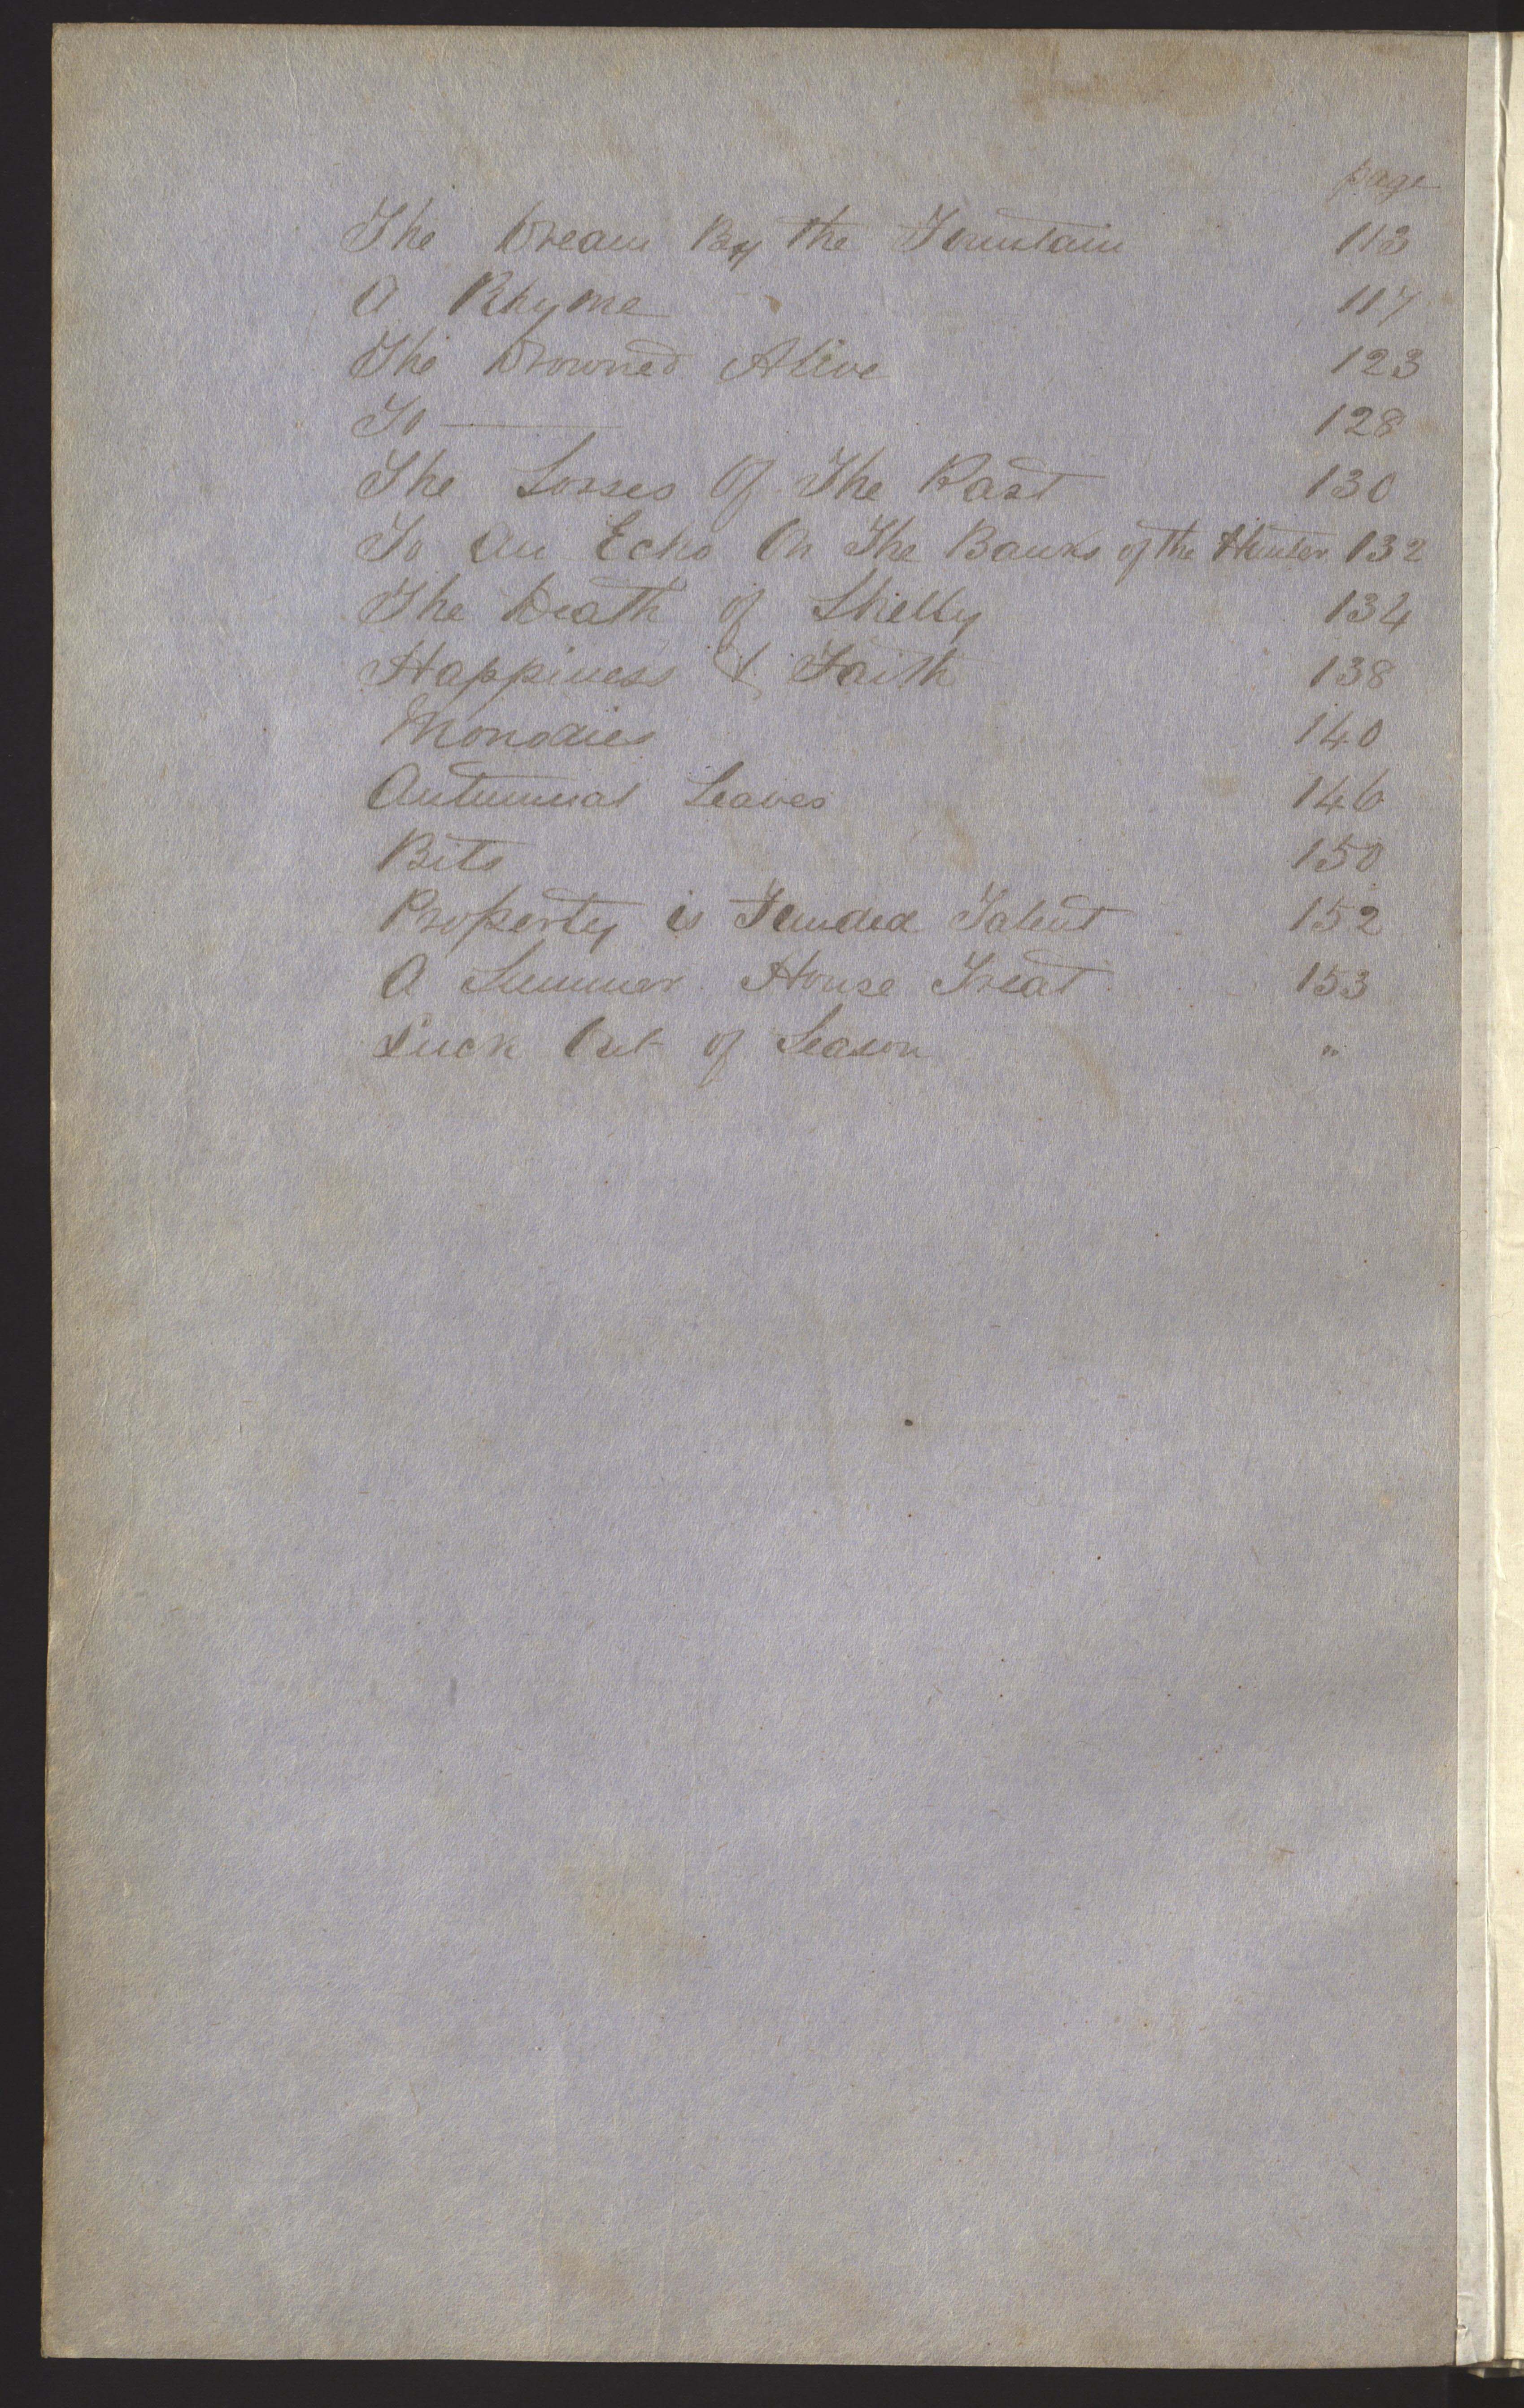 page
The Dream By the Fountain 113
A Rhyme 117
The Drowned Alive 123
To —— 128
The Losses Of The Past 130
To An Echo On The Banks of the Hunter 132
The Death of Shelly 134
Happiness & Faith 138
Monodies 140
Autumnal Leaves 146
Bits 150
Property is Funded Talent 152
A Summer House Treat 153
Luck Out of Season "